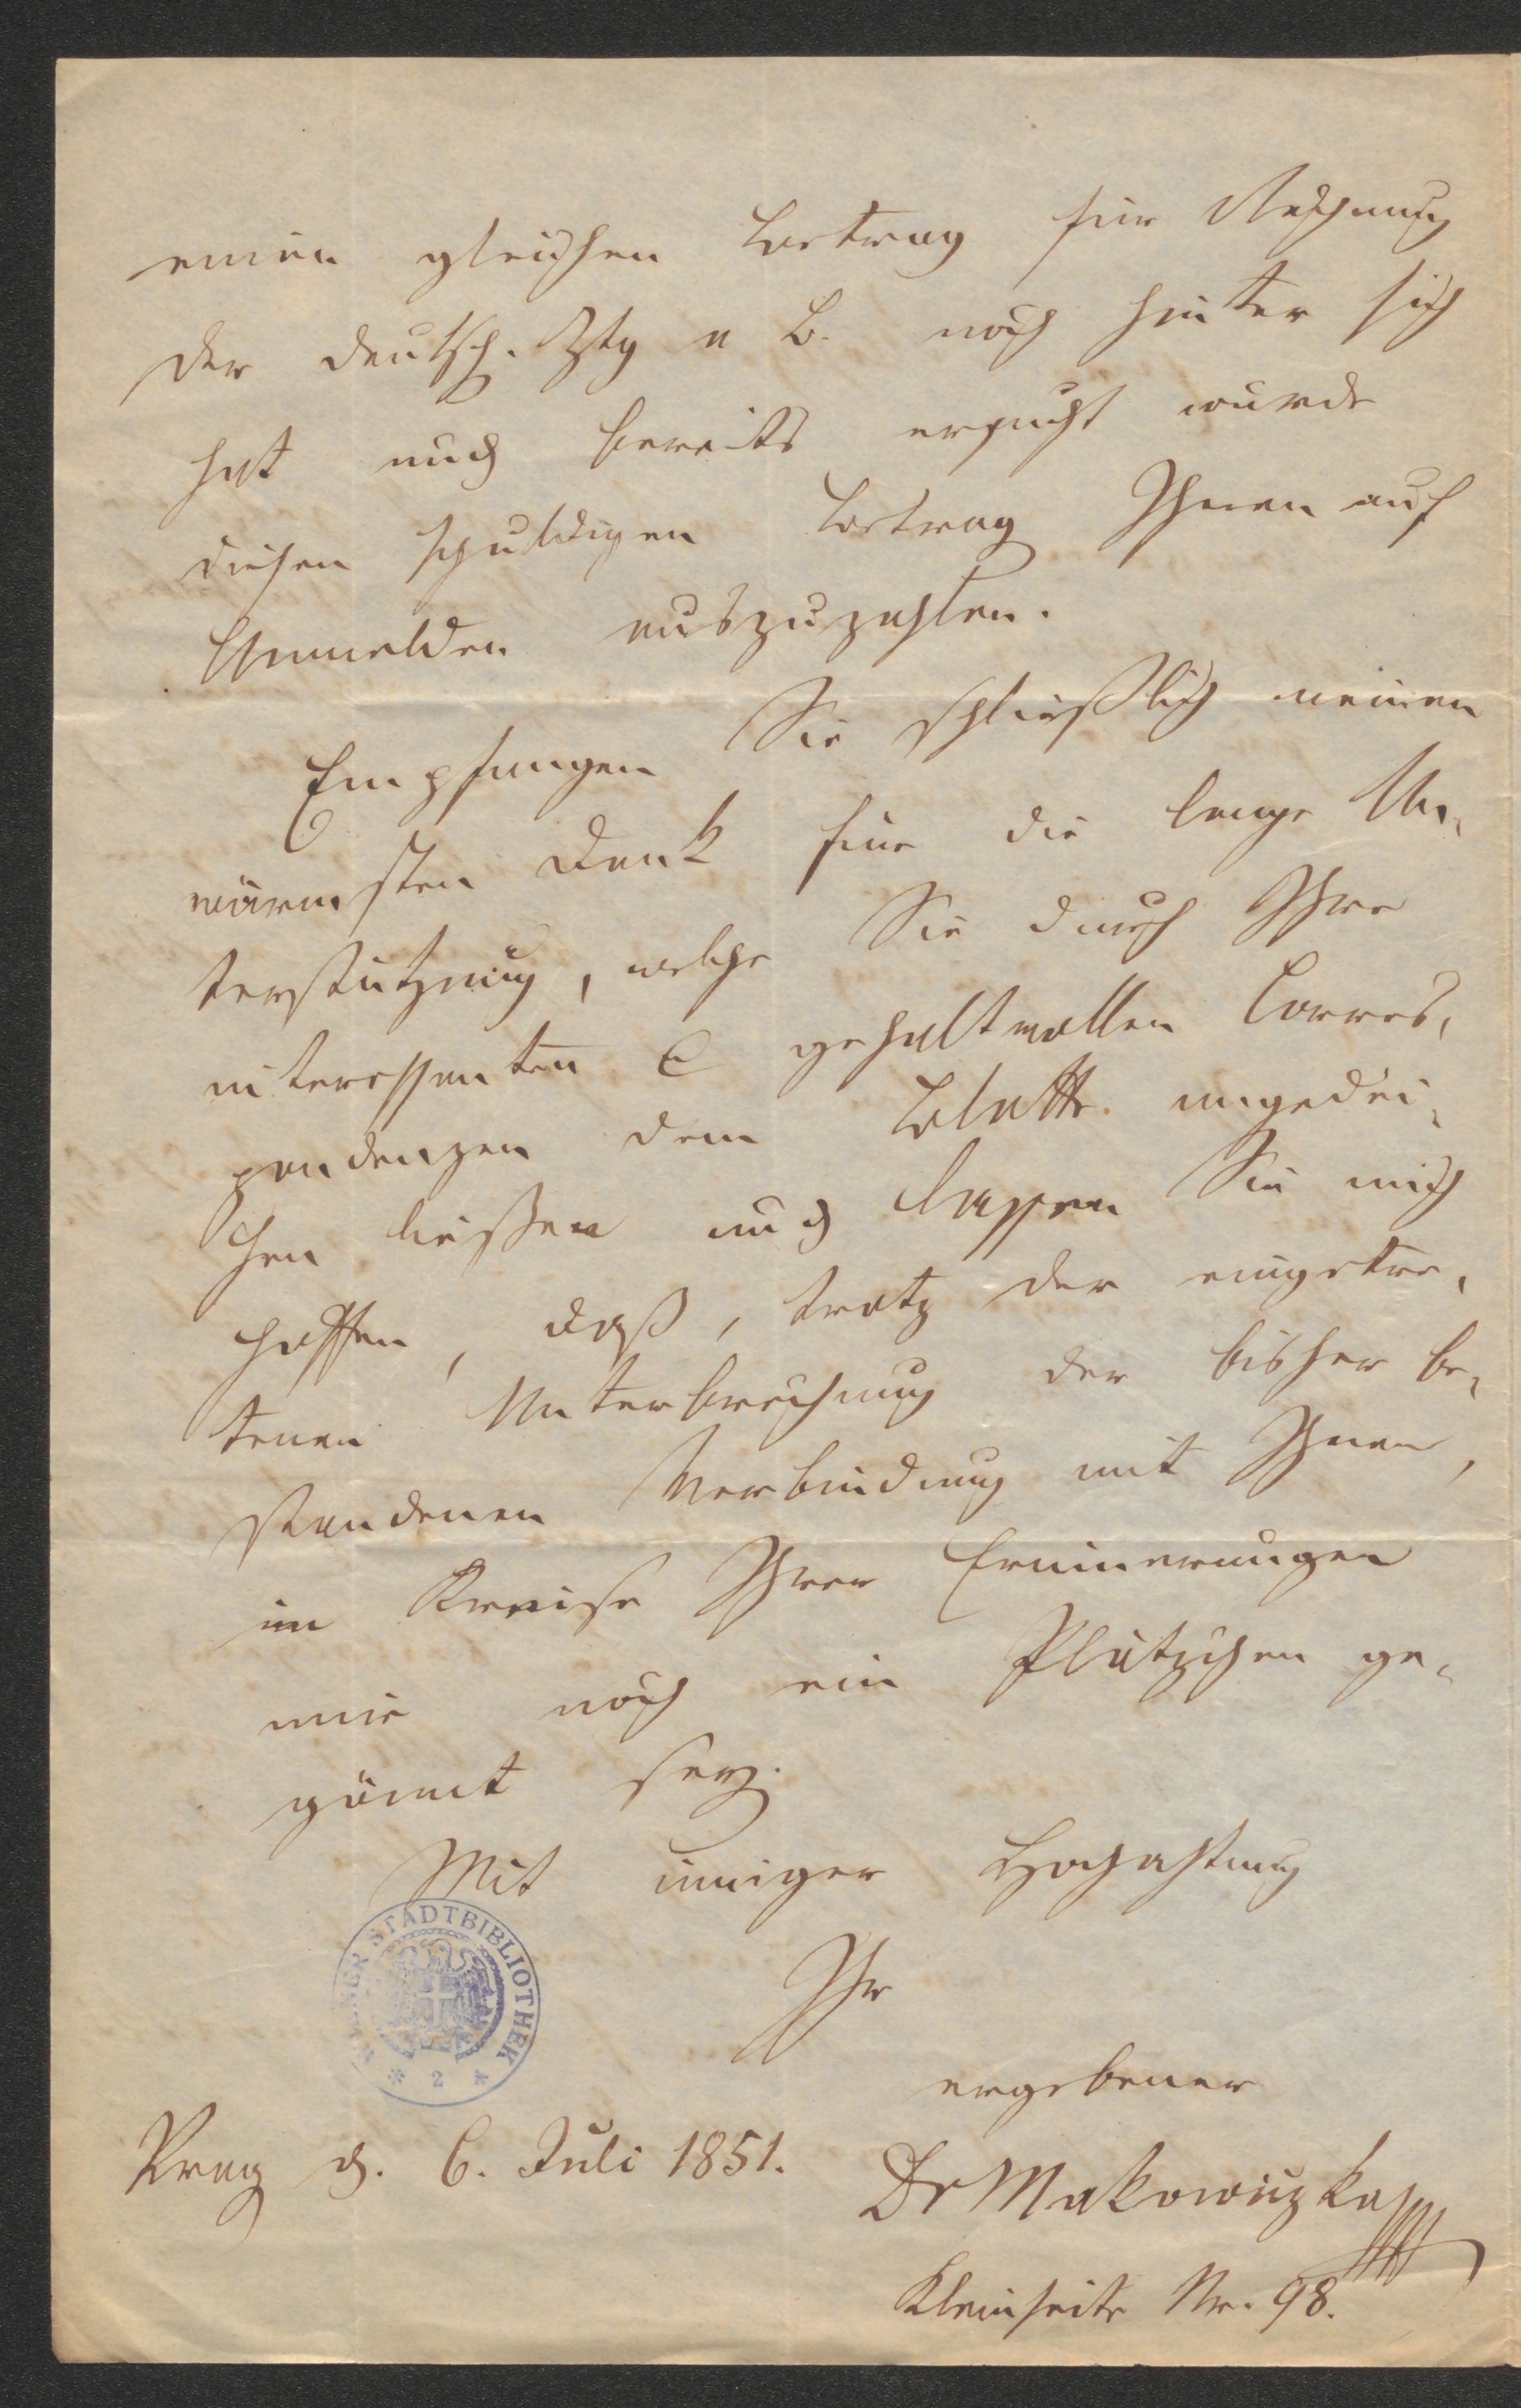 einen gleichen Betrag für Rechnung
der deutsch. Ztg a B. noch hinter sich
hat und bereits ersucht wurde
diesen schuldigen Betrag Ihnen auf
Anmelden auszuzahlen.
Empfangen Sie schließlich meinen
wärmsten Dank für die lange Un-
terstützung, welche Sie durch Ihre
interessanten & gehaltvollen Corres-
pondenzen dem Blatte angedei-
hen ließen und lassen Sie mich
hoffen, daß, trotz der eingetre-
tenen Unterbrechung der bisher be-
standenen Verbindung mit Ihnen,
im Kreise Ihrer Erinnerungen
mir noch ein Plätzchen ge-
gönnt sey.
Mit inniger Hochachtung
Ihr
ergebener
Prag d. 6. Juli 1851.
Dr Makowiczka
Kleinseite Nr. 98.
WIENER STADTBIBLIOTHEK
* 2 *